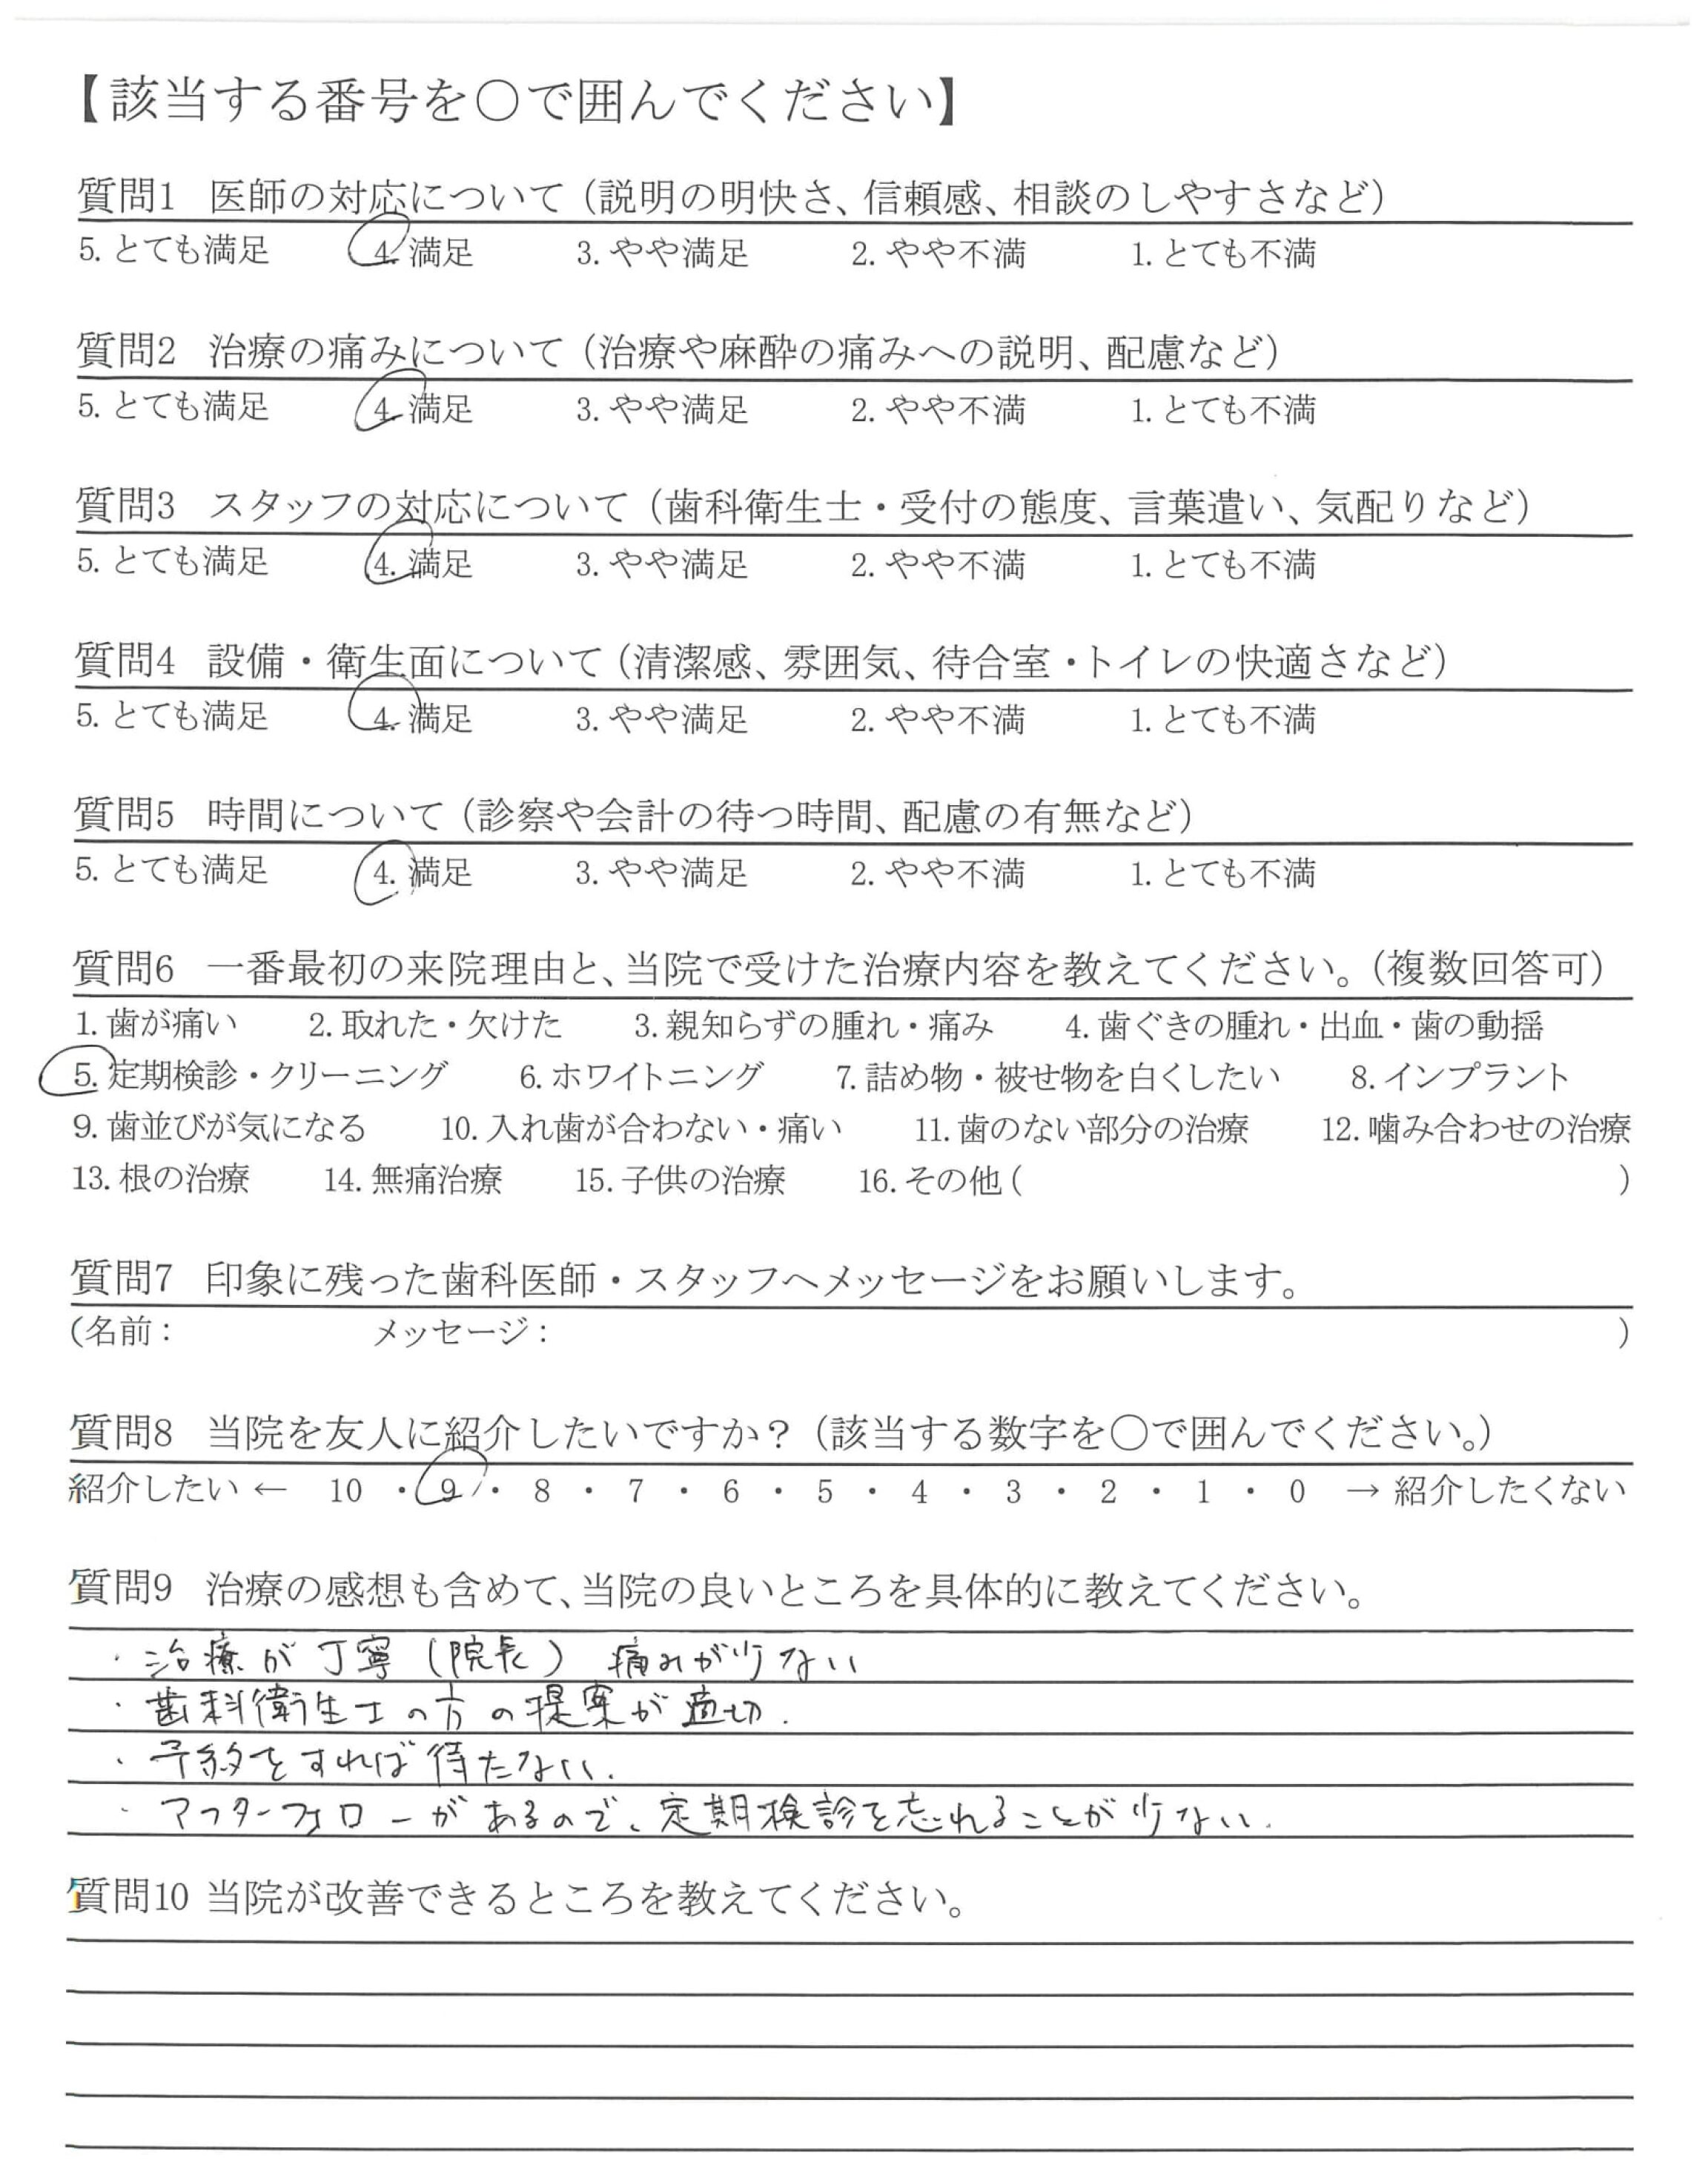 【該当する番号を○で囲んでください】
質問1 医師の対応について（説明の明快さ、信頼感、相談のしやすさなど）
5. とても満足 4. 満足 3. やや満足 2. やや不満 1. とても不満
質問2 治療の痛みについて（治療や麻酔の痛みへの説明、配慮など）
5. とても満足 4. 満足 3. やや満足 2. やや不満 1. とても不満
質問3 スタッフの対応について（歯科衛生士・受付の態度、言葉遣い、気配りなど）
5. とても満足 4. 満足 3. やや満足 2. やや不満 1. とても不満
質問4 設備・衛生面について（清潔感、雰囲気、待合室・トイレの快適さなど）
5. とても満足 4. 満足 3. やや満足 2. やや不満 1. とても不満
質問5 時間について（診察や会計の待つ時間、配慮の有無など）
5. とても満足 4. 満足 3. やや満足 2. やや不満 1. とても不満
質問6 一番最初の来院理由と、当院で受けた治療内容を教えてください。（複数回答可）
1. 歯が痛い 2. 取れた・欠けた 3. 親知らずの腫れ・痛み 4. 歯ぐきの腫れ・出血・歯の動揺
5. 定期検診・クリーニング 6. ホワイトニング 7. 詰め物・被せ物を白くしたい 8. インプラント
9. 歯並びが気になる 10. 入れ歯が合わない・痛い 11. 歯のない部分の治療 12. 噛み合わせの治療
13. 根の治療 14. 無痛治療 15. 子供の治療 16. その他（ ）
質問7 印象に残った歯科医師・スタッフへメッセージをお願いします。
（名前： メッセージ： ）
質問8 当院を友人に紹介したいですか？（該当する数字を○で囲んでください。）
紹介したい ← 10 ・ 9 ・ 8 ・ 7 ・ 6 ・ 5 ・ 4 ・ 3 ・ 2 ・ 1 ・ 0 → 紹介したくない
質問9 治療の感想も含めて、当院の良いところを具体的に教えてください。
・治療が丁寧（院長） 痛みが少ない
・歯科衛生士の方の提案が適切.
・予約をすれば待たない.
・アフターフォローがあるので、定期検診を忘れることが少ない.
質問10 当院が改善できるところを教えてください。